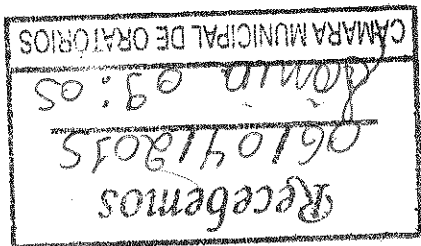 Recebemos
06/04/2015
Sônia 09:05
CÂMARA MUNICIPAL DE ORATÓRIOS